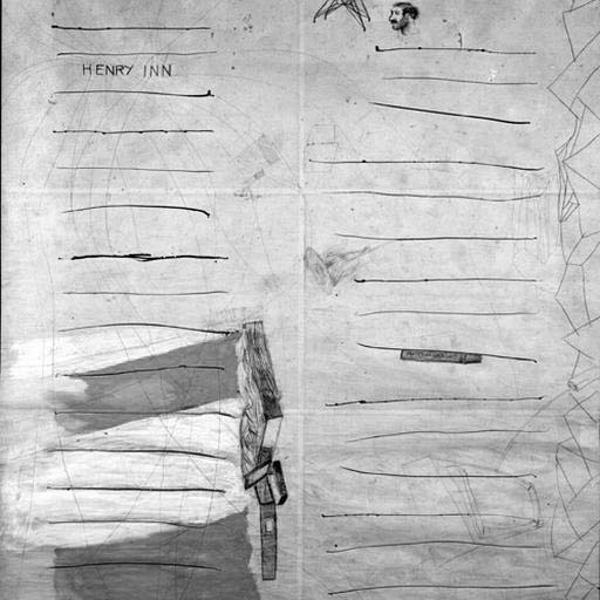 HENRY INN